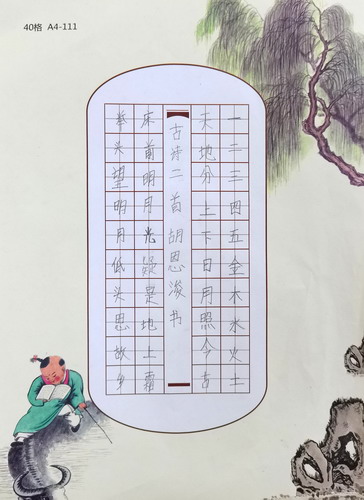 40格 A4-111
一二三四五金木水火土
天地分上下日月照今古
古诗二首胡思浚书
床前明月光疑是地上霜
举头望明月低头思故乡